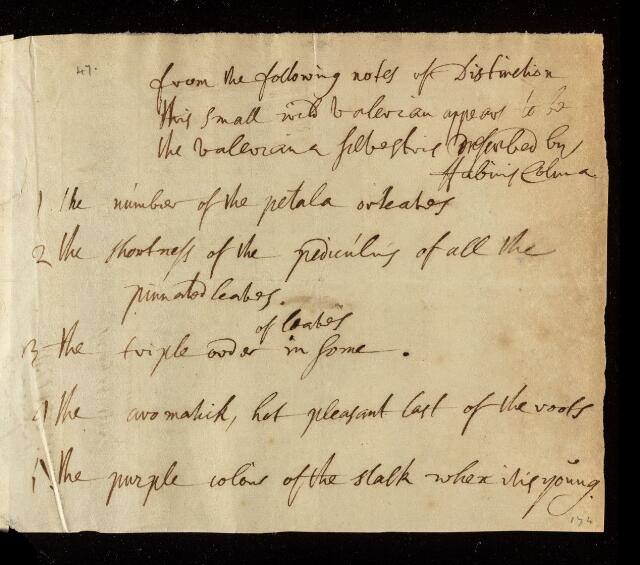 47.
from the following notes of Distinction
this small wild valerian appears to be
the valeriana silvestris described by
Columna
1 the number of the petala or leaves
2 the shortness of the pediculus of all the
pinnated leaves.
of leaves
3 the triple order in some .
4 the aromatick, hot pleasant tast of the roots
5 the purple colour of the stalk when it is young.
174